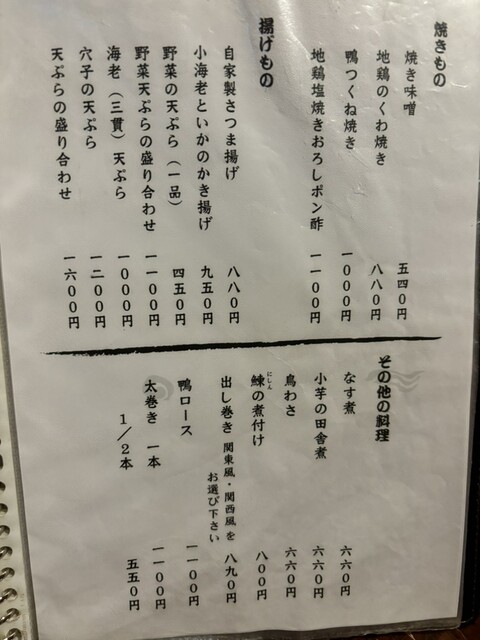 焼きもの
焼き味噌 五四0円
地鶏のくわ焼き 八八0円
鴨つくね焼き 一000円
地鶏塩焼きおろしポン酢 一一00円
揚げもの
自家製さつま揚げ 八八0円
小海老といかのかき揚げ 九五0円
野菜の天ぷら（一品） 四五0円
野菜天ぷらの盛り合わせ 一一00円
海老（三貫）天ぷら 一000円
穴子の天ぷら 一二00円
天ぷらの盛り合わせ 一六00円
その他の料理
なす煮 六六0円
小芋の田舎煮 六六0円
鳥わさ 六六0円
鰊の煮付け 八00円
にしん
出し巻き 関東風・関西風を 八九0円
お選び下さい
鴨ロース 一一00円
太巻き 一本 一一00円
1／2本 五五0円